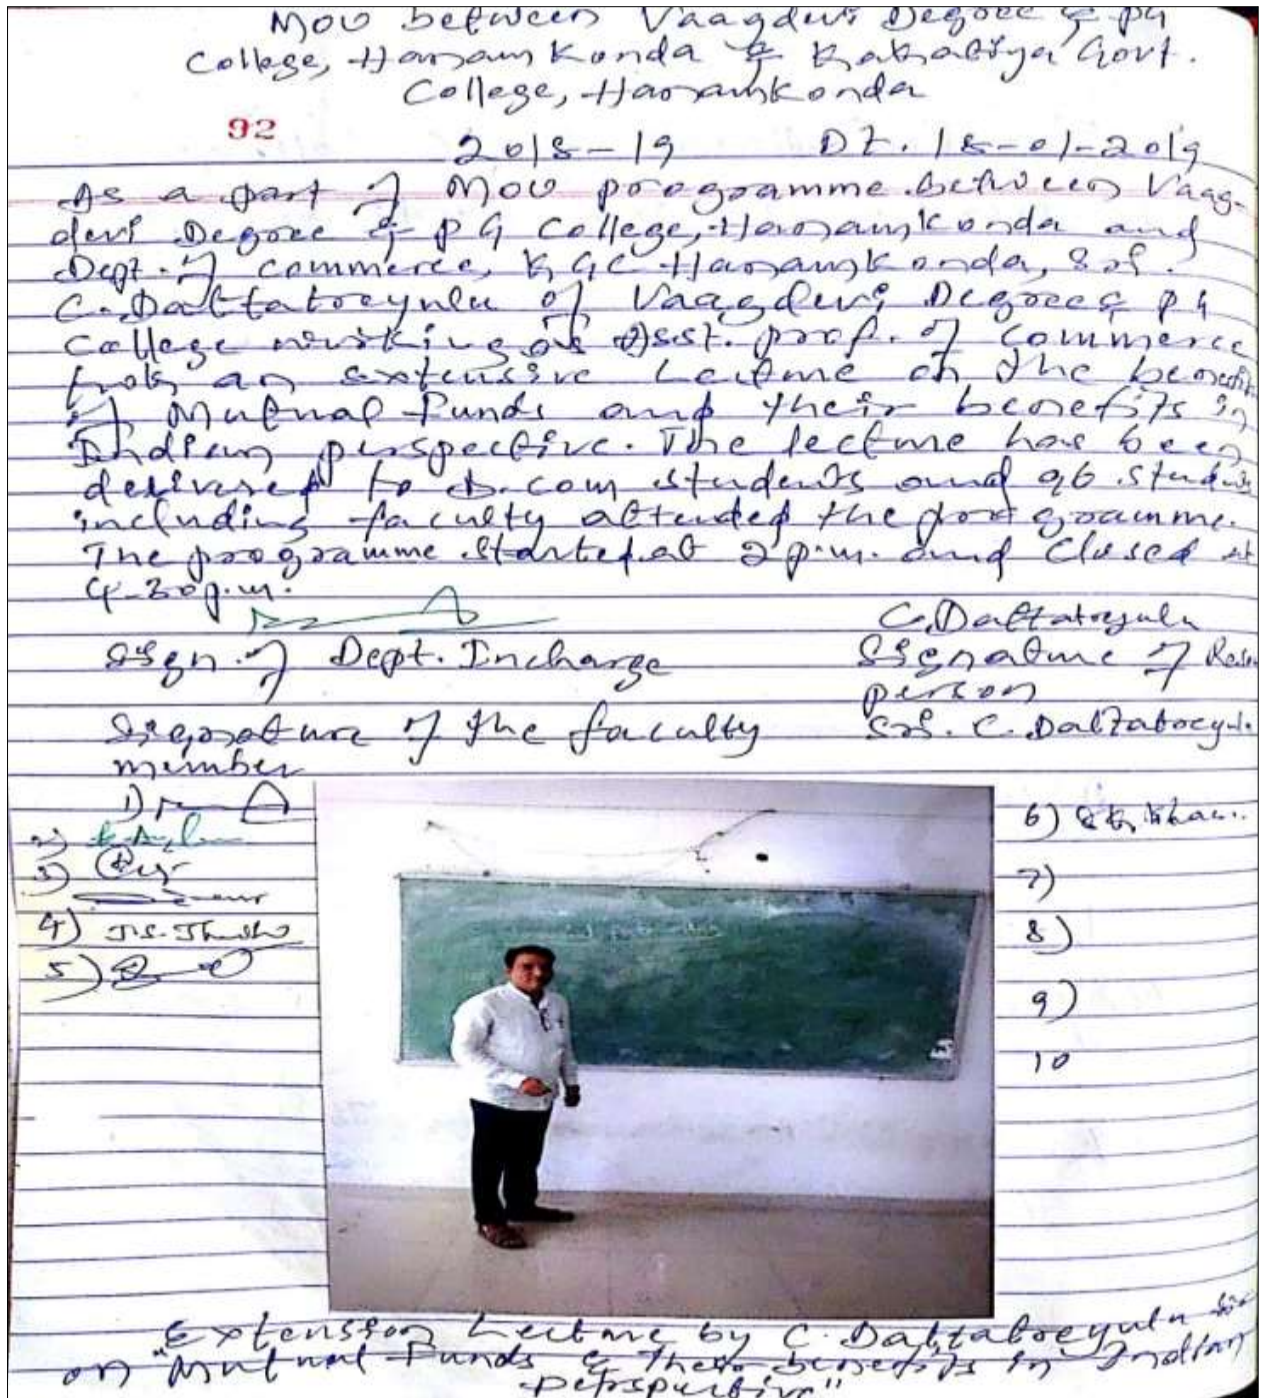 MOU between Vaagdevi Degree & PG
College, Hanamkonda & Kakatiya Govt.
College, Hanamkonda
92
2018-19 Dt. 18-01-2019
As a part of MOU programme between Vaag-
devi Degree & PG College, Hanamkonda and
Dept. of commerce, KGC Hanamkonda, Sri.
C. Dattatreyulu of Vaagdevi Degree & PG
College working as Asst. prof. of Commerce
an extensive Lecture on the benefits
of Mutual Funds and their benefits in
Indian perspective. The lecture has been
delivered to B.com students and 96 students
including faculty attended the programme.
The programme started at 2 p.m. and closed at
4-30 p.m.
C. Dattatreyulu
Sign. of Dept. Incharge Signature of
person
Signature of the faculty Sri. C. Dattatreyulu
member
1)
2)
3)
4)
5)
6)
7)
8)
9)
10
Extension Lecture by C. Dattatreyulu
on "Mutual Funds & their benefits in Indian
perspective"